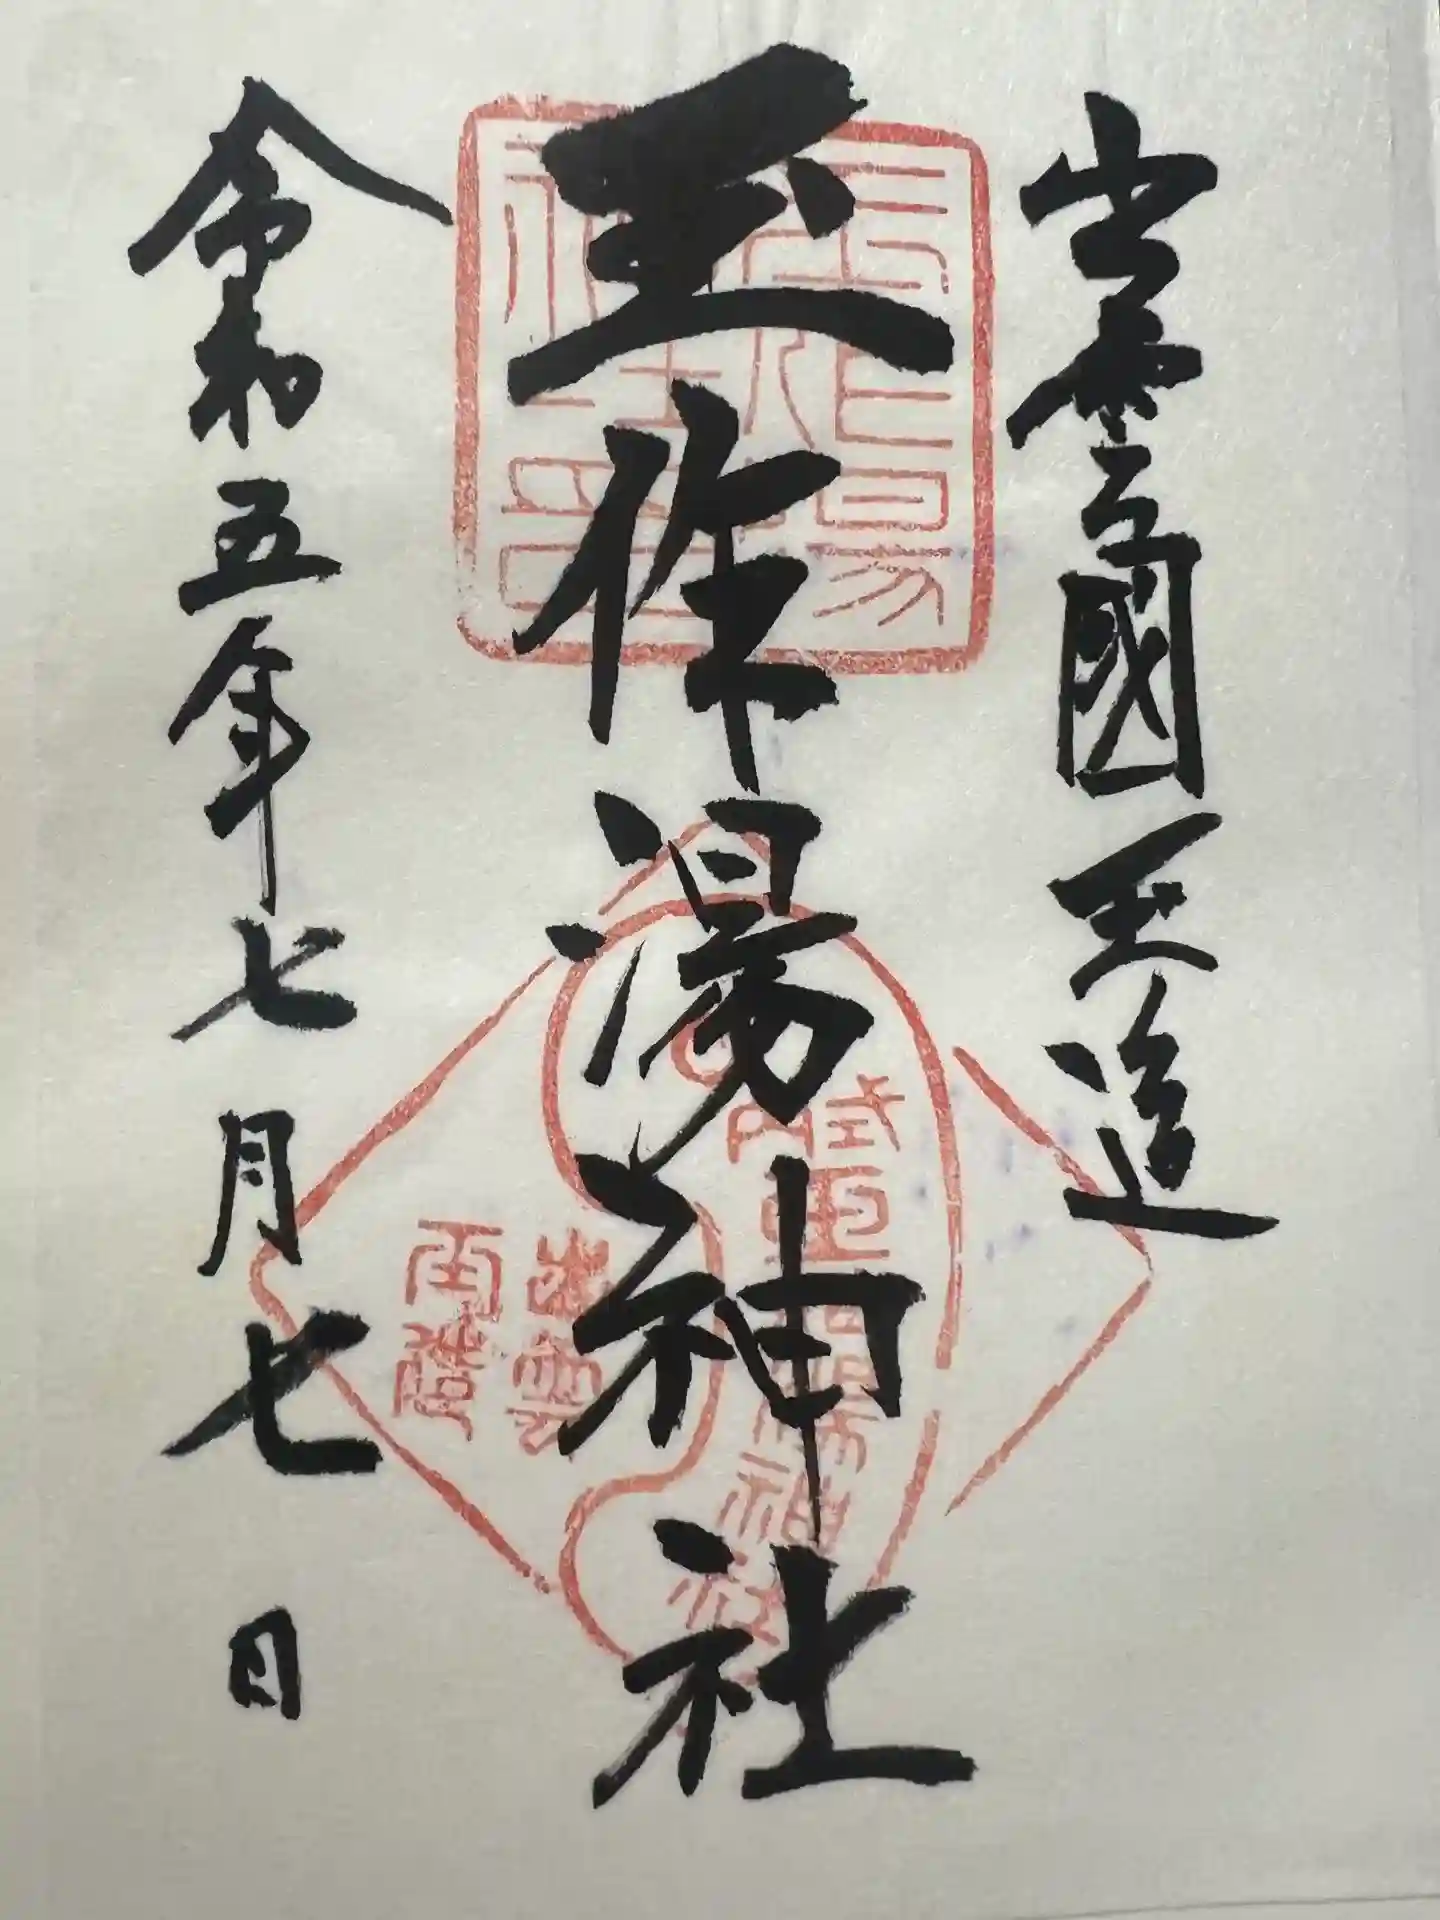 出雲國玉造
玉作湯神社
令和五年七月七日
式内
玉作湯神社
出雲
玉造